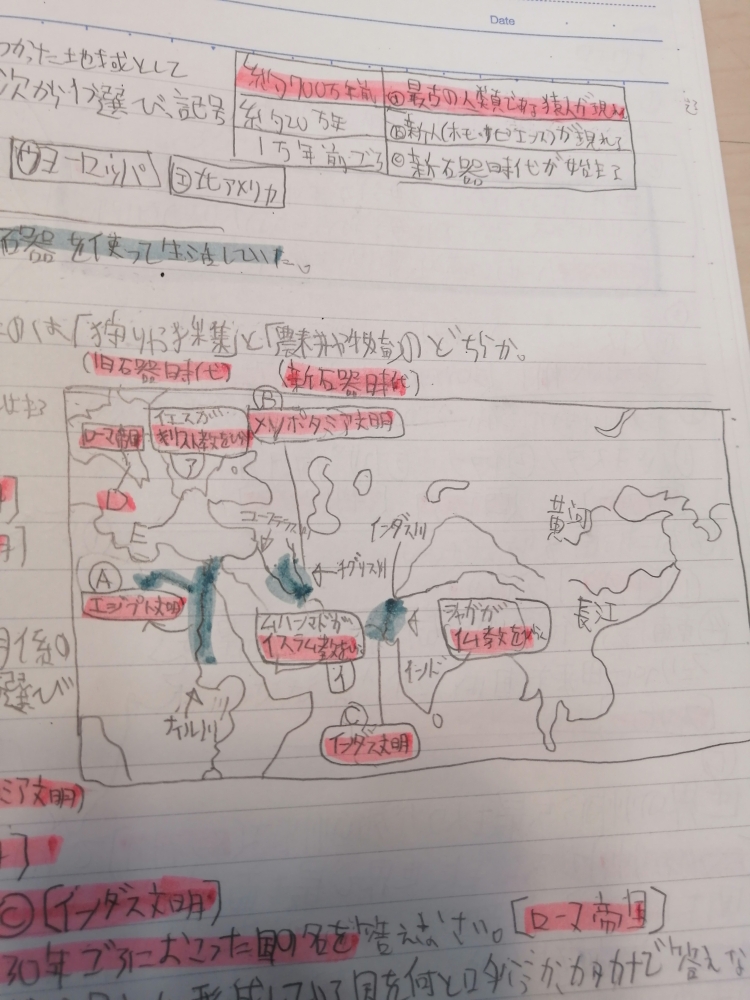 Date
つかた土地域として
次から1つ選び、記号
約700万年前
Ⓐ最古の人類である猿人が現れる
約20万年
Ⓑ新人(ホモ・サピエンス)が現れる
1万年前ごろ
Ⓒ新石器時代が始まる
㋒ヨーロッパ
㋓北アメリカ
石器を使って生活していた。
「狩りや採集」と「農耕や牧畜」のどちらか。
(旧石器時代)
(新石器時代)
Ⓑ
ローマ帝国
イエスが
キリスト教をひらく
メソポタミア文明
ア
D
E
ユーフラテス川
チグリス川
インダス川
黄河
Ⓐ
エジプト文明
ムハンマドが
イスラム教を
シャカが
仏教を
長江
イ
インド
ナイル川
Ⓒ
インダス文明
ミア文明)
Ⓒ[インダス文明]
30年ごろにおこった国の名を答えなさい。[ローマ帝国]
形成している国を何というか、カタカナで答えな